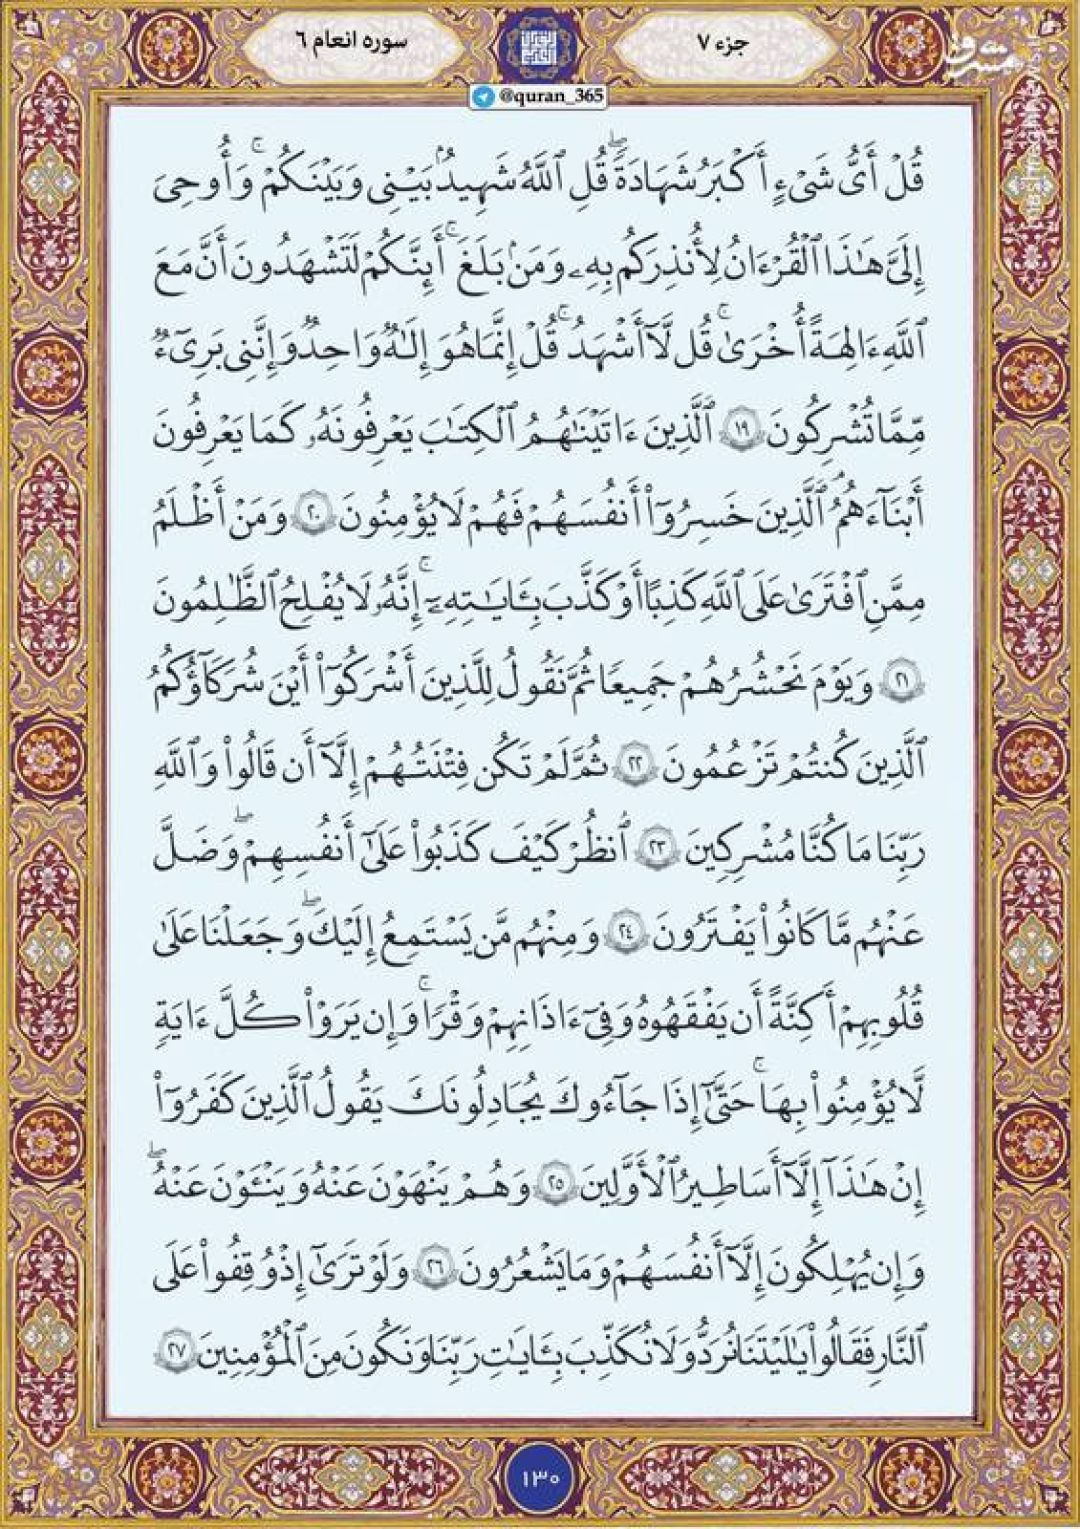 جزء ۷
سوره انعام ۶
مشرق
@quran_365
قُلْ أَىُّ شَىْءٍ أَكْبَرُ شَهَادَةً ۖ قُلِ ٱللَّهُ شَهِيدٌۢ بَيْنِى وَبَيْنَكُمْ ۚ وَأُوحِىَ
إِلَىَّ هَـٰذَا ٱلْقُرْءَانُ لِأُنذِرَكُم بِهِۦ وَمَنۢ بَلَغَ ۚ أَئِنَّكُمْ لَتَشْهَدُونَ أَنَّ مَعَ
ٱللَّهِ ءَالِهَةً أُخْرَىٰ ۚ قُل لَّآ أَشْهَدُ ۚ قُلْ إِنَّمَا هُوَ إِلَـٰهٌ وَٰحِدٌ وَإِنَّنِى بَرِىٓءٌ
مِّمَّا تُشْرِكُونَ ۱۹ ٱلَّذِينَ ءَاتَيْنَـٰهُمُ ٱلْكِتَـٰبَ يَعْرِفُونَهُۥ كَمَا يَعْرِفُونَ
أَبْنَآءَهُمُ ۘ ٱلَّذِينَ خَسِرُوٓا۟ أَنفُسَهُمْ فَهُمْ لَا يُؤْمِنُونَ ۲۰ وَمَنْ أَظْلَمُ
مِمَّنِ ٱفْتَرَىٰ عَلَى ٱللَّهِ كَذِبًا أَوْ كَذَّبَ بِـَٔايَـٰتِهِۦٓ ۗ إِنَّهُۥ لَا يُفْلِحُ ٱلظَّـٰلِمُونَ
۲۱ وَيَوْمَ نَحْشُرُهُمْ جَمِيعًا ثُمَّ نَقُولُ لِلَّذِينَ أَشْرَكُوٓا۟ أَيْنَ شُرَكَآؤُكُمُ
ٱلَّذِينَ كُنتُمْ تَزْعُمُونَ ۲۲ ثُمَّ لَمْ تَكُن فِتْنَتُهُمْ إِلَّآ أَن قَالُوا۟ وَٱللَّهِ
رَبِّنَا مَا كُنَّا مُشْرِكِينَ ۲۳ ٱنظُرْ كَيْفَ كَذَبُوا۟ عَلَىٰٓ أَنفُسِهِمْ ۖ وَضَلَّ
عَنْهُم مَّا كَانُوا۟ يَفْتَرُونَ ۲٤ وَمِنْهُم مَّن يَسْتَمِعُ إِلَيْكَ ۖ وَجَعَلْنَا عَلَىٰ
قُلُوبِهِمْ أَكِنَّةً أَن يَفْقَهُوهُ وَفِىٓ ءَاذَانِهِمْ وَقْرًا ۚ وَإِن يَرَوْا۟ كُلَّ ءَايَةٍ
لَّا يُؤْمِنُوا۟ بِهَا ۚ حَتَّىٰٓ إِذَا جَآءُوكَ يُجَـٰدِلُونَكَ يَقُولُ ٱلَّذِينَ كَفَرُوٓا۟
إِنْ هَـٰذَآ إِلَّآ أَسَـٰطِيرُ ٱلْأَوَّلِينَ ۲۵ وَهُمْ يَنْهَوْنَ عَنْهُ وَيَنْـَٔوْنَ عَنْهُ ۖ
وَإِن يُهْلِكُونَ إِلَّآ أَنفُسَهُمْ وَمَا يَشْعُرُونَ ۲٦ وَلَوْ تَرَىٰٓ إِذْ وُقِفُوا۟ عَلَى
ٱلنَّارِ فَقَالُوا۟ يَـٰلَيْتَنَا نُرَدُّ وَلَا نُكَذِّبَ بِـَٔايَـٰتِ رَبِّنَا وَنَكُونَ مِنَ ٱلْمُؤْمِنِينَ ۲۷
۱۳۰